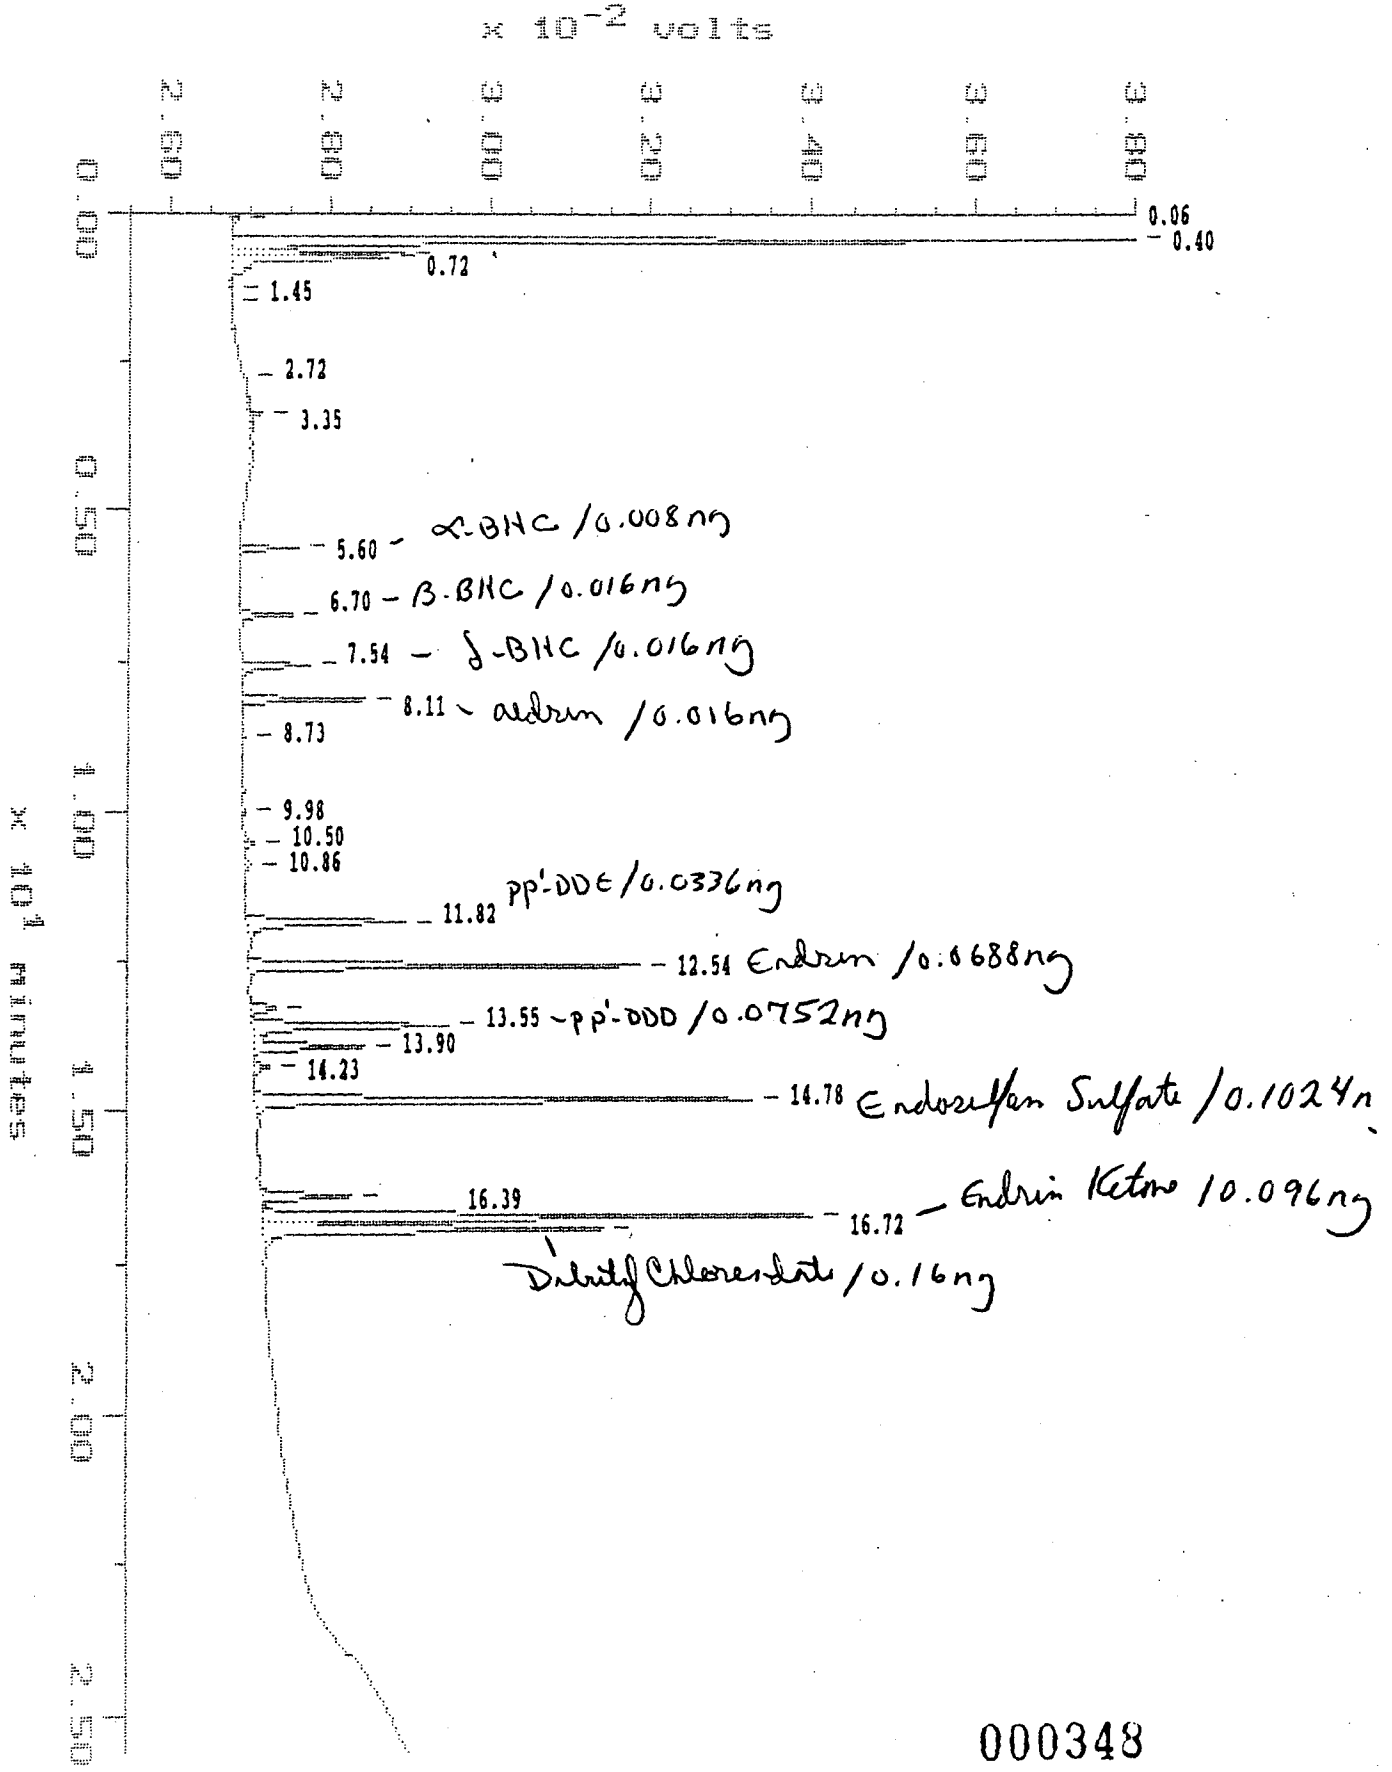 x 10-2 volts
2.60 2.80 3.00 3.20 3.40 3.60 3.80
0.00
0.06
0.40
0.72
1.45
2.72
3.35
0.50
5.60 - α-BHC /0.008ng
6.70 - β-BHC /0.016ng
7.54 - δ-BHC /0.016ng
8.11 - aldrin /0.016ng
8.73
1.00
9.98
10.50
10.86
11.82 pp'-DDE/0.0336ng
12.54 Endrin /0.0688ng
13.55 - pp'-DDD /0.0752ng
13.90
14.23
1.50
14.78 Endosulfan Sulfate /0.1024n
16.39
16.72 - Endrin Ketone /0.096ng
Dibutyl Chlorendate /0.16ng
2.00
2.50
x 101 minutes
000348